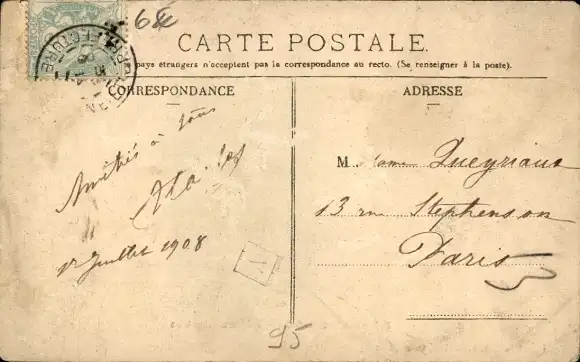 6
CARTE POSTALE.
pays étrangers n'acceptent pas la correspondance au recto. (Se renseigner à la poste).
CORRESPONDANCE
ADRESSE
Amitiés à tous
1er Juillet 1908
Madame Queyriaux
13 rue Stephenson
Paris
95